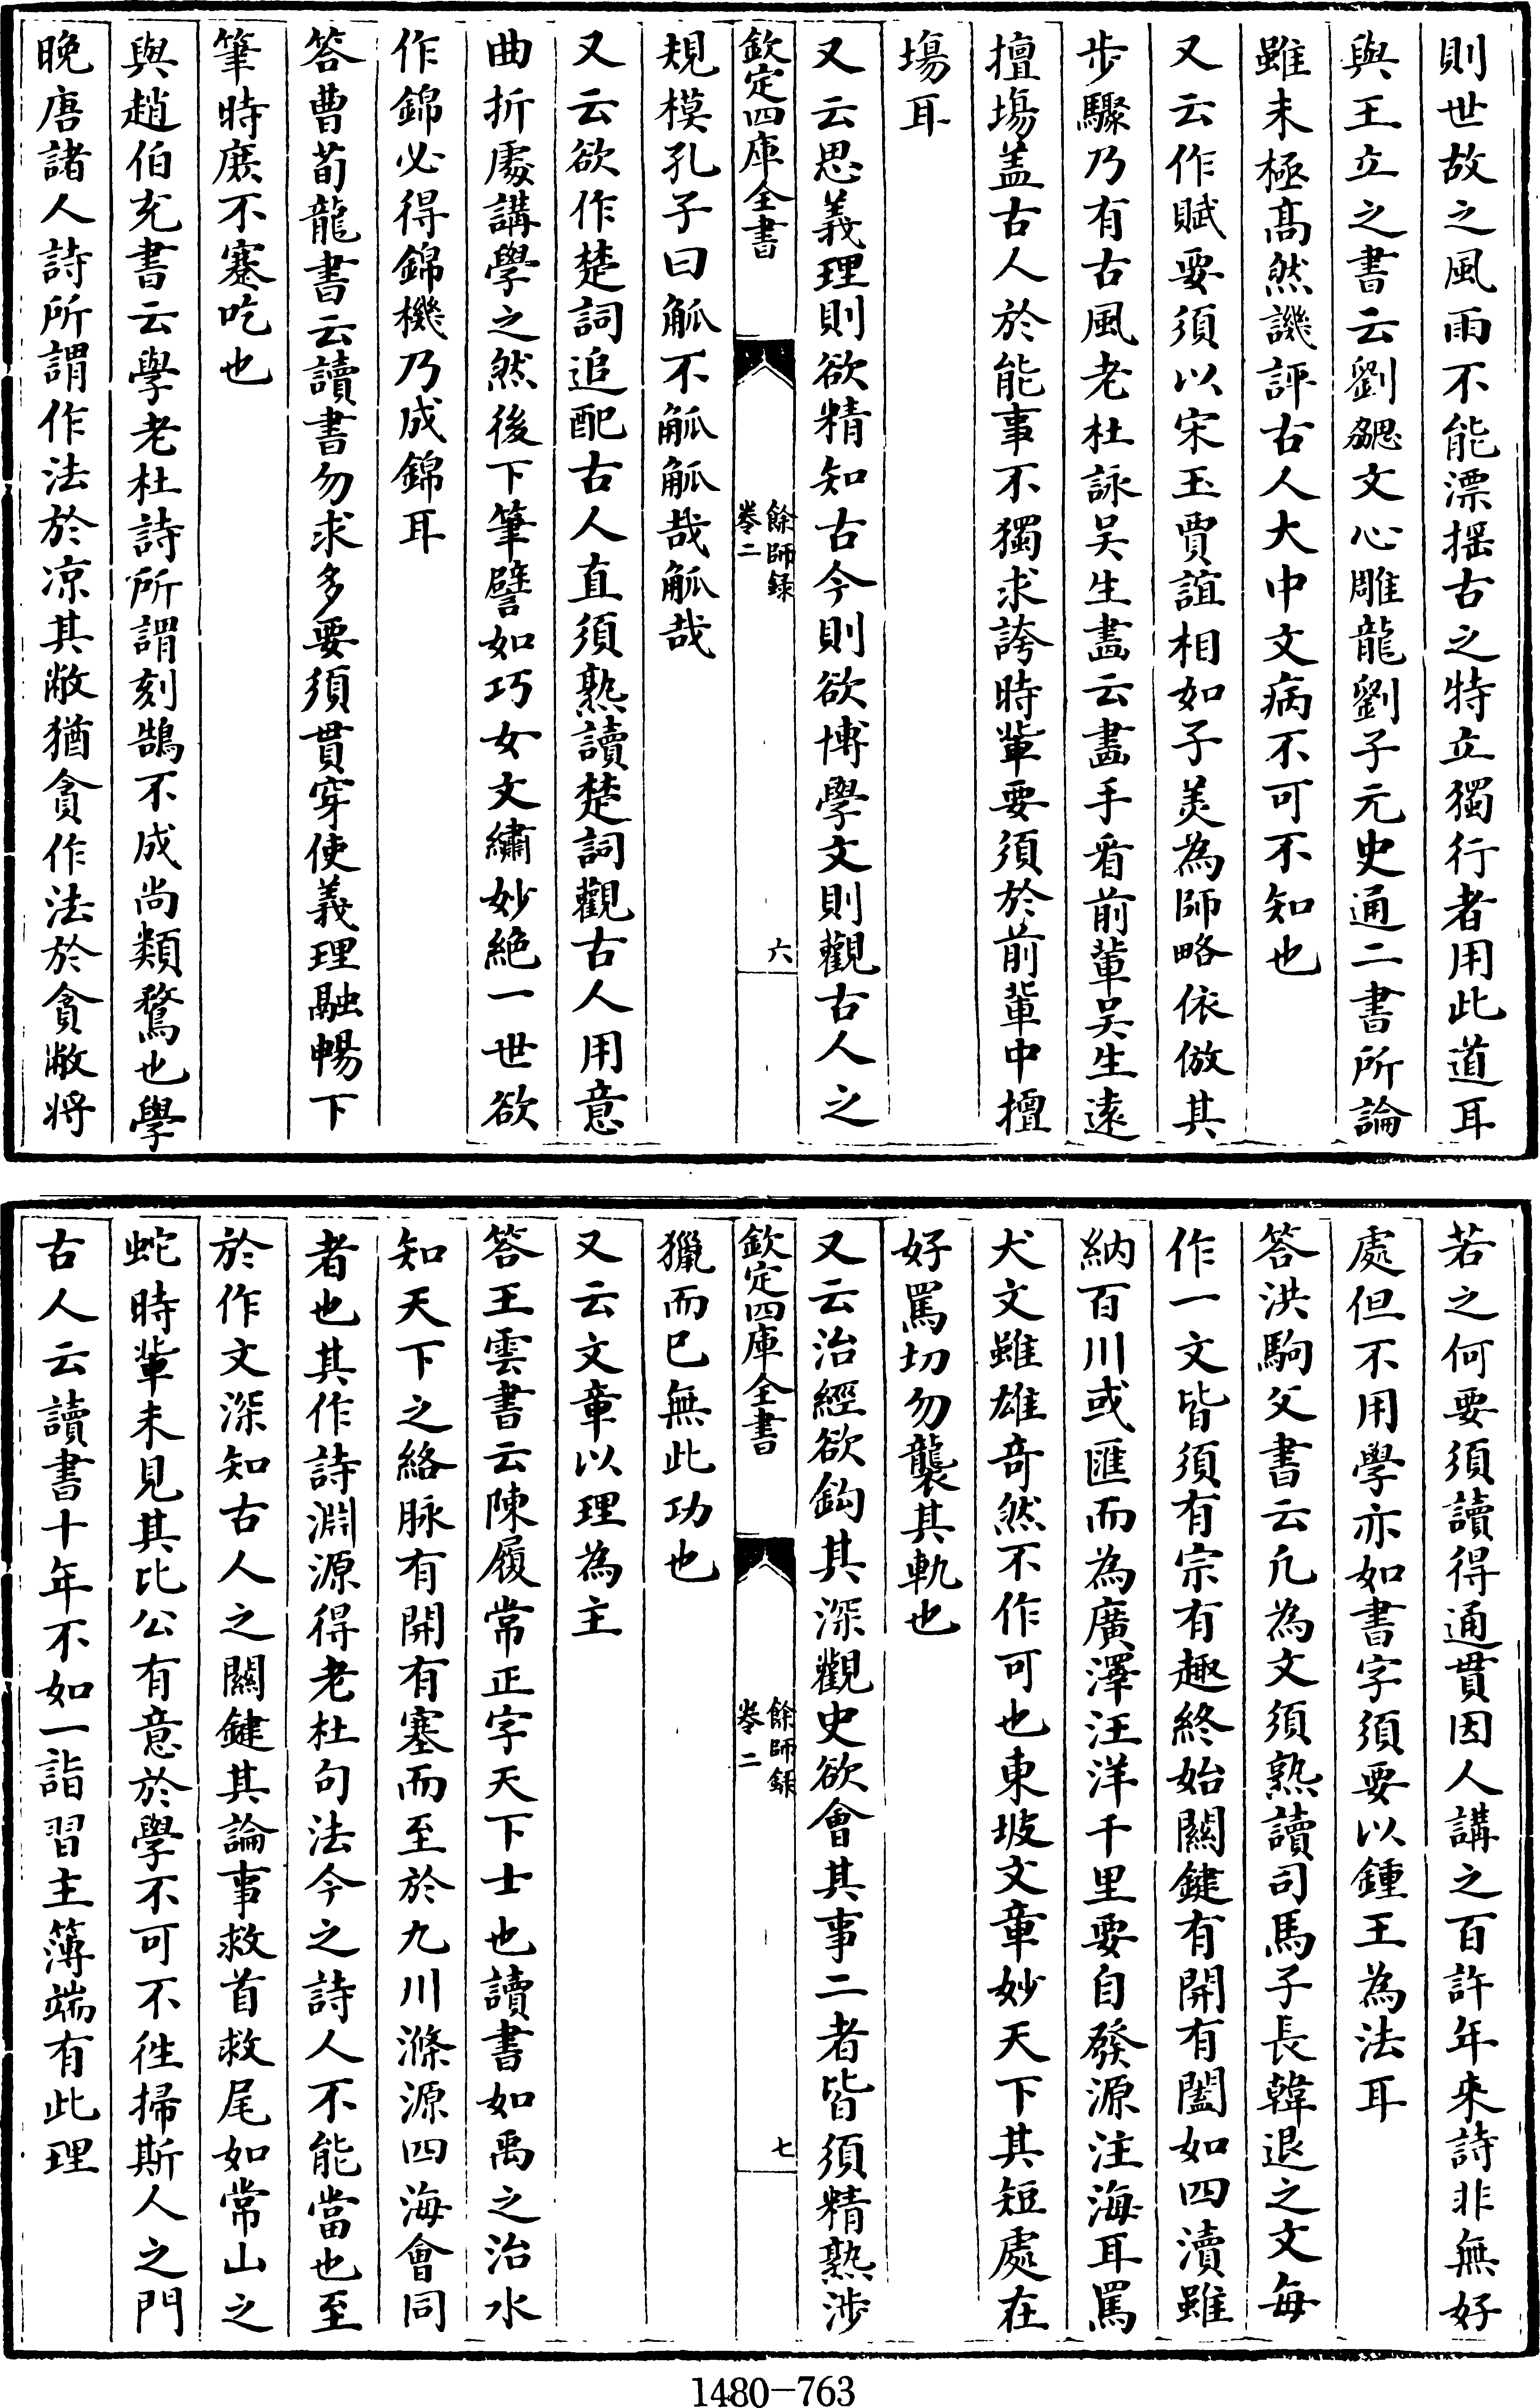 則世故之風雨不能漂揺古之特立獨行者用此道耳
與王立之書云劉勰文心雕龍劉子元史通二書所論
雖未極髙然譏評古人大中文病不可不知也
又云作賦要須以宋玉賈誼相如子美為師略依倣其
步驟乃有古風老杜詠吴生畵云畵手看前輩吴生逺
擅塲盖古人於能事不獨求誇時輩要須於前輩中擅
塲耳
又云思義理則欲精知古今則欲博學文則觀古人之
欽定四庫全書
餘師録
卷二
六
規模孔子曰觚不觚觚哉觚哉
又云欲作楚詞追配古人直須熟讀楚詞觀古人用意
曲折處講學之然後下筆譬如巧女文繡妙絶一世欲
作錦必得錦機乃成錦耳
答曹荀龍書云讀書勿求多要須貫穿使義理融暢下
筆時庻不蹇吃也
與趙伯充書云學老杜詩所謂刻鵠不成尚類鶩也學
晩唐諸人詩所謂作法於凉其敝猶貪作法於貪敝將
若之何要須讀得通貫因人講之百許年来詩非無好
處但不用學亦如書字須要以鍾王為法耳
答洪駒父書云凡為文須熟讀司馬子長韓退之文每
作一文皆須有宗有趣終始關鍵有開有闔如四瀆雖
納百川或匯而為廣澤汪洋千里要自發源注海耳罵
犬文雖雄竒然不作可也東坡文章妙天下其短處在
好罵切勿襲其軌也
又云治經欲鈎其深觀史欲會其事二者皆須精熟涉
欽定四庫全書
餘師録
卷二
七
獵而已無此功也
又云文章以理為主
答王雲書云陳履常正字天下士也讀書如禹之治水
知天下之絡脉有開有塞而至於九川滌源四海會同
者也其作詩淵源得老杜句法今之詩人不能當也至
於作文深知古人之關鍵其論事救首救尾如常山之
蛇時輩未見其比公有意於學不可不徃掃斯人之門
古人云讀書十年不如一詣習主簿端有此理
1480-763